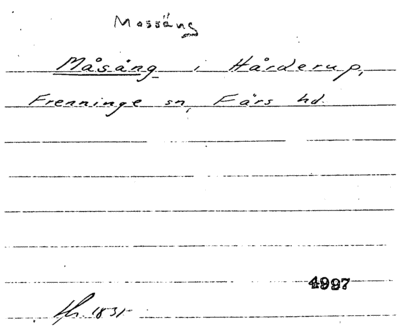 Mossäng
Måsäng i Hårderup,
Frenninge sn, Färs hd.
4997